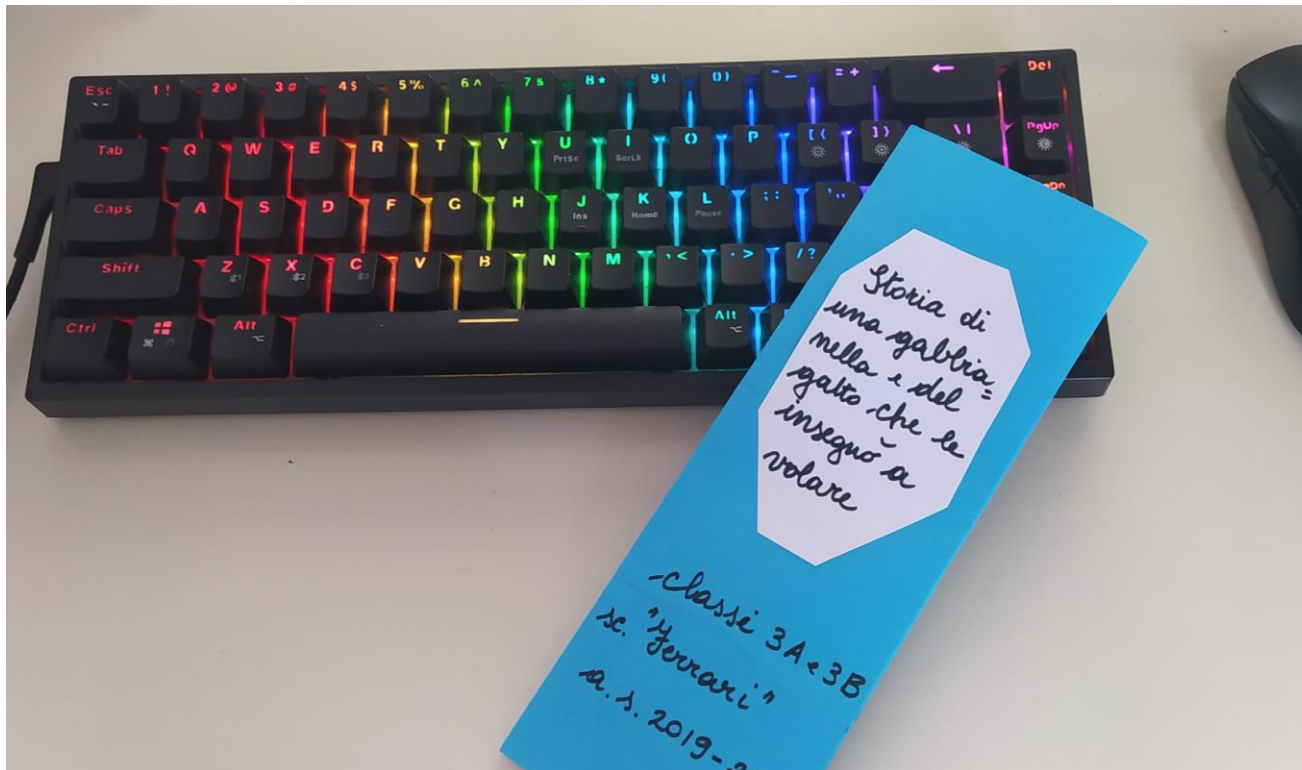 Esc 1 ! 2 @ 3 # 4 $ 5 % 6 ^ 7 & 8 * 9 ( 0 ) - _ = + ← Del
Tab Q W E R T Y U I O P [ { ] } \ | PgUp
PrtSc ScrLk
Caps A S D F G H J K L ; : ' " PgDn
Ins Home Pause
Shift Z X C V B N M , < . > / ?
Ctrl Alt Alt
Storia di
una gabbia=
nella e del
gatto che le
insegnò a
volare
-classi 3A e 3B
sc. "Ferrari"
a.s. 2019-2